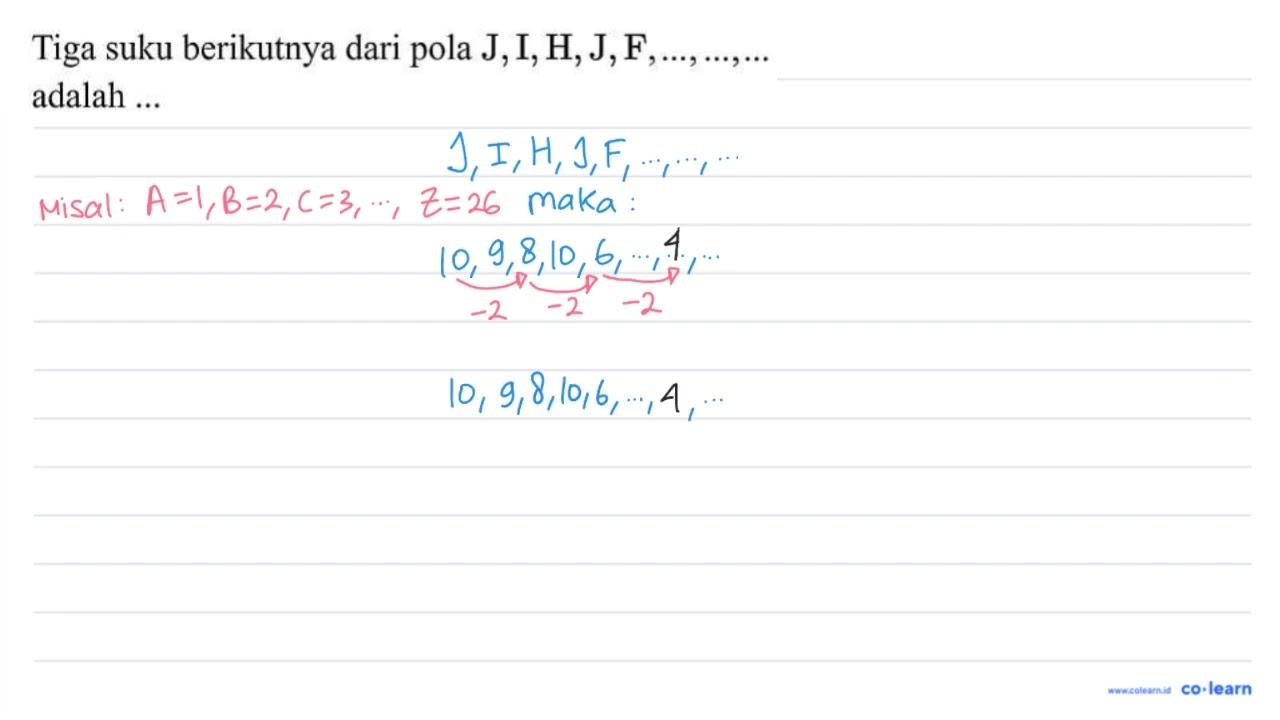 Tiga suku berikutnya dari pola J, I, H, J, F, ..., ..., ...
adalah ...
J, I, H, J, F, ..., ..., ...
Misal: A=1, B=2, C=3, ..., Z=26 maka :
10, 9, 8, 10, 6, ..., 4, ...
-2 -2 -2
10, 9, 8, 10, 6, ..., 4, ...
www.colearn.id co·learn